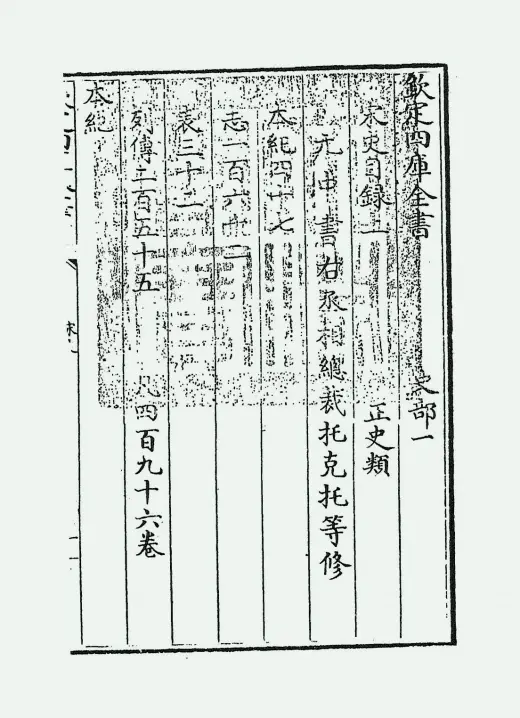 欽定四庫全書 史部一
宋史目録一 正史類
元中書右丞相總裁托克托等修
本紀四十七
志一百六十二
表三十二
列傳二百五十五 凡四百九十六卷
本紀